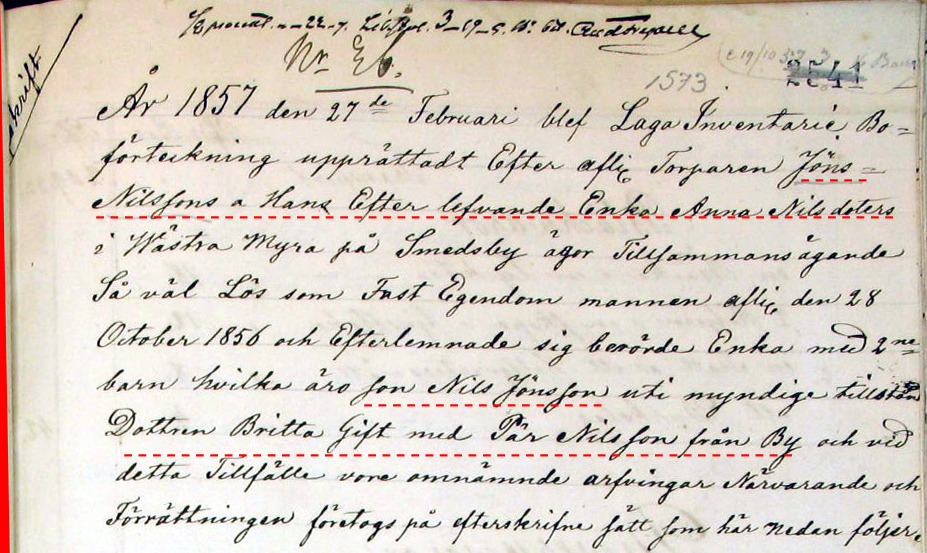 afskrift.
N. 26.
1573
2541
År 1857 den 27de Februari blef Laga Inventarie Bo=
förteckning upprättadt Efter aflie Torparen Jöns=
Nilssons a Hans Efter lefvande Enka Anna Nilsdoters
i Wästra Myra på Smedsby ägor Tillsammansägande
Så väl Lös som Fast Egendom mannen aflie den 28
October 1856 och Efterlemnade sig berörde Enka med 2ne
barn hvilka äro son Nils Jönsson uti myndige tillstån
Dottren Britta Gift med Pär Nilsson från By och vid
detta Tillfälle vore omnämnde arfvingar Närvarande och
Förrättningen företogs på efterskrifne sätt som här nedan följer.